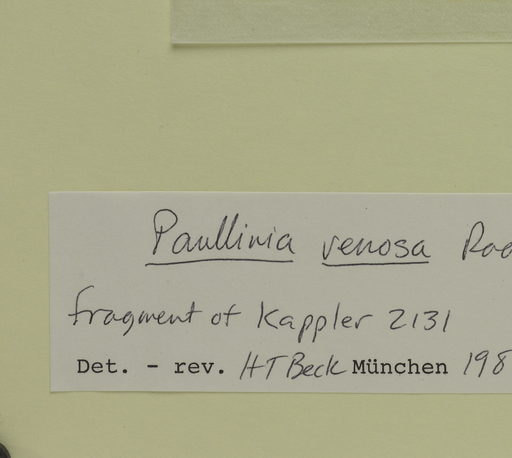 Paullinia venosa Rad
fragment of Kappler 2131
Det. - rev. HT Beck München 198